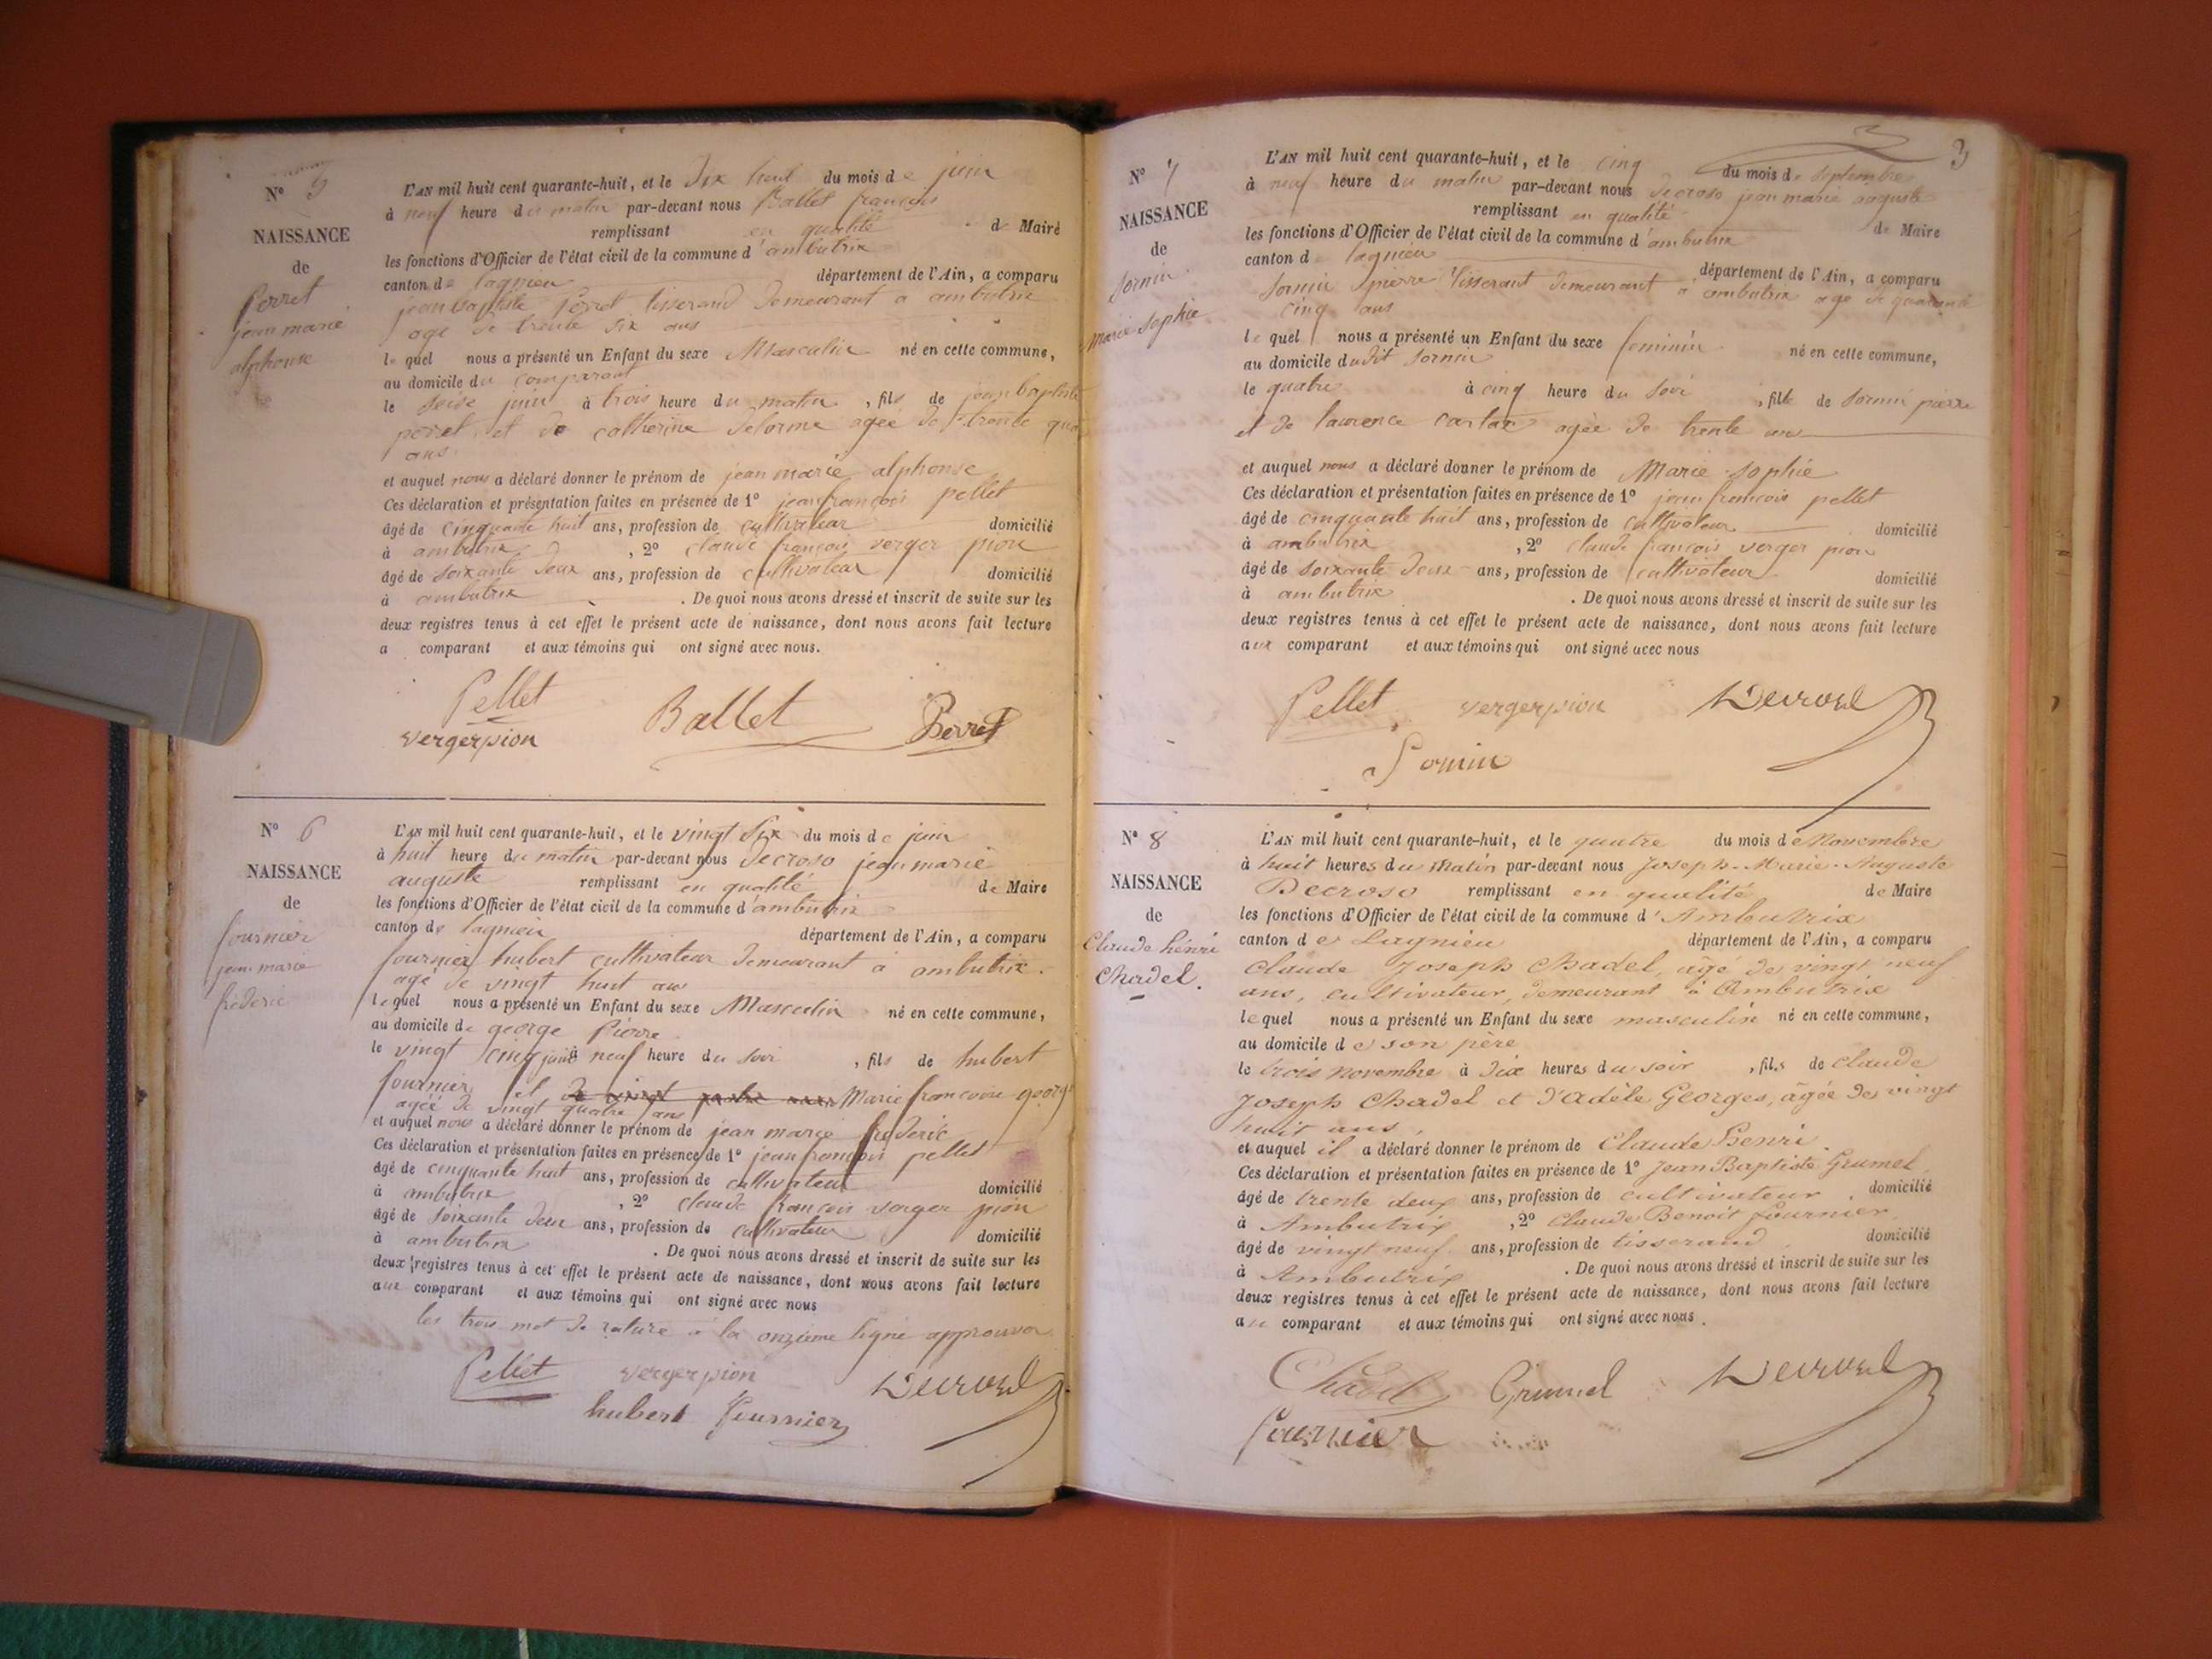 N° 5
NAISSANCE
de
Perret
jean marie
alphonse
L'AN mil huit cent quarante-huit, et le dix huit du mois de juin
à neuf heure du matin par-devant nous Ballet françois
remplissant en qualité de Maire
les fonctions d'Officier de l'état civil de la commune d'ambutrix
canton de lagnieu département de l'Ain, a comparu
jean baptiste perret tisserand demeurant a ambutrix
age de trente six ans
lequel nous a présenté un Enfant du sexe Masculin né en cette commune,
au domicile du comparant
le seise juin à trois heure du matin, fils de jean baptiste
perret et de catherine delorme agée de trente
ans
et auquel nous a déclaré donner le prénom de jean marie alphonse
Ces déclaration et présentation faites en présence de 1° jean françois pellet
âgé de cinquante huit ans, profession de cultivateur domicilié
à ambutrix, 2° claude françois verger pion
âgé de soixante deux ans, profession de cultivateur domicilié
à ambutrix. De quoi nous avons dressé et inscrit de suite sur les
deux registres tenus à cet effet le présent acte de naissance, dont nous avons fait lecture
a comparant et aux témoins qui ont signé avec nous.
Pellet Ballet Perret
vergerpion
N° 6
NAISSANCE
de
fournier
jean marie
frederic
L'AN mil huit cent quarante-huit, et le vingt six du mois de juin
à huit heure du matin par-devant nous decroso jean marie
auguste remplissant en qualité de Maire
les fonctions d'Officier de l'état civil de la commune d'ambutrix
canton de lagnieu département de l'Ain, a comparu
fournier hubert cultivateur demeurant à ambutrix
agé de vingt huit ans
lequel nous a présenté un Enfant du sexe Masculin né en cette commune,
au domicile de george pierre
le vingt cinq juin à neuf heure du soir, fils de hubert
fournier et de vingt quatre ans Marie francoise george
agée de vingt quatre ans
et auquel nous a déclaré donner le prénom de jean marie frederic
Ces déclaration et présentation faites en présence de 1° jean françois pellet
âgé de cinquante huit ans, profession de cultivateur domicilié
à ambutrix, 2° claude françois verger pion
âgé de soixante deux ans, profession de cultivateur domicilié
à ambutrix. De quoi nous avons dressé et inscrit de suite sur les
deux registres tenus à cet effet le présent acte de naissance, dont nous avons fait lecture
aux comparant et aux témoins qui ont signé avec nous
les trois mot de rature a la onzieme ligne approuver
Pellet vergerpion Decroso
hubert fournier
3
N° 7
NAISSANCE
de
Sornin
marie sophie
L'AN mil huit cent quarante-huit, et le cinq du mois de septembre
à neuf heure du matin par-devant nous decroso jean marie auguste
remplissant en qualité de Maire
les fonctions d'Officier de l'état civil de la commune d'ambutrix
canton de lagnieu département de l'Ain, a comparu
Sornin pierre tisserant demeurant a ambutrix age de quarante
cinq ans
lequel nous a présenté un Enfant du sexe feminin né en cette commune,
au domicile dudit Sornin
le quatre à cinq heure du soir, fille de Sornin pierre
et de laurence agée de trente ans
et auquel nous a déclaré donner le prénom de Marie Sophie
Ces déclaration et présentation faites en présence de 1° jean francois pellet
âgé de cinquante huit ans, profession de cultivateur domicilié
à ambutrix, 2° claude françois verger pion
âgé de soixante deux ans, profession de cultivateur domicilié
à ambutrix. De quoi nous avons dressé et inscrit de suite sur les
deux registres tenus à cet effet le présent acte de naissance, dont nous avons fait lecture
aux comparant et aux témoins qui ont signé avec nous
Pellet vergerpion Decroso
Sornin
N° 8
NAISSANCE
de
Claude hénri
Chadel.
L'AN mil huit cent quarante-huit, et le quatre du mois de Novembre
à huit heures du Matin par-devant nous Joseph-Marie-Auguste
Decroso remplissant en qualité de Maire
les fonctions d'Officier de l'état civil de la commune d'Ambutrix
canton de Lagnieu département de l'Ain, a comparu
Claude Joseph Chadel, âgé de vingt neuf
ans, cultivateur, demeurant à Ambutrix
lequel nous a présenté un Enfant du sexe masculin né en cette commune,
au domicile de son père
le trois novembre à dix heures du soir, fils de Claude
Joseph Chadel et d'adèle Georges, âgée de vingt
huit ans,
et auquel il a déclaré donner le prénom de Claude Henri.
Ces déclaration et présentation faites en présence de 1° Jean Baptiste Grumel,
âgé de trente deux ans, profession de cultivateur, domicilié
à Ambutrix, 2° Claude Benoit fournier,
âgé de vingt neuf ans, profession de tisserand, domicilié
à Ambutrix. De quoi nous avons dressé et inscrit de suite sur les
deux registres tenus à cet effet le présent acte de naissance, dont nous avons fait lecture
au comparant et aux témoins qui ont signé avec nous.
Chadel Grumel Decroso
fournier